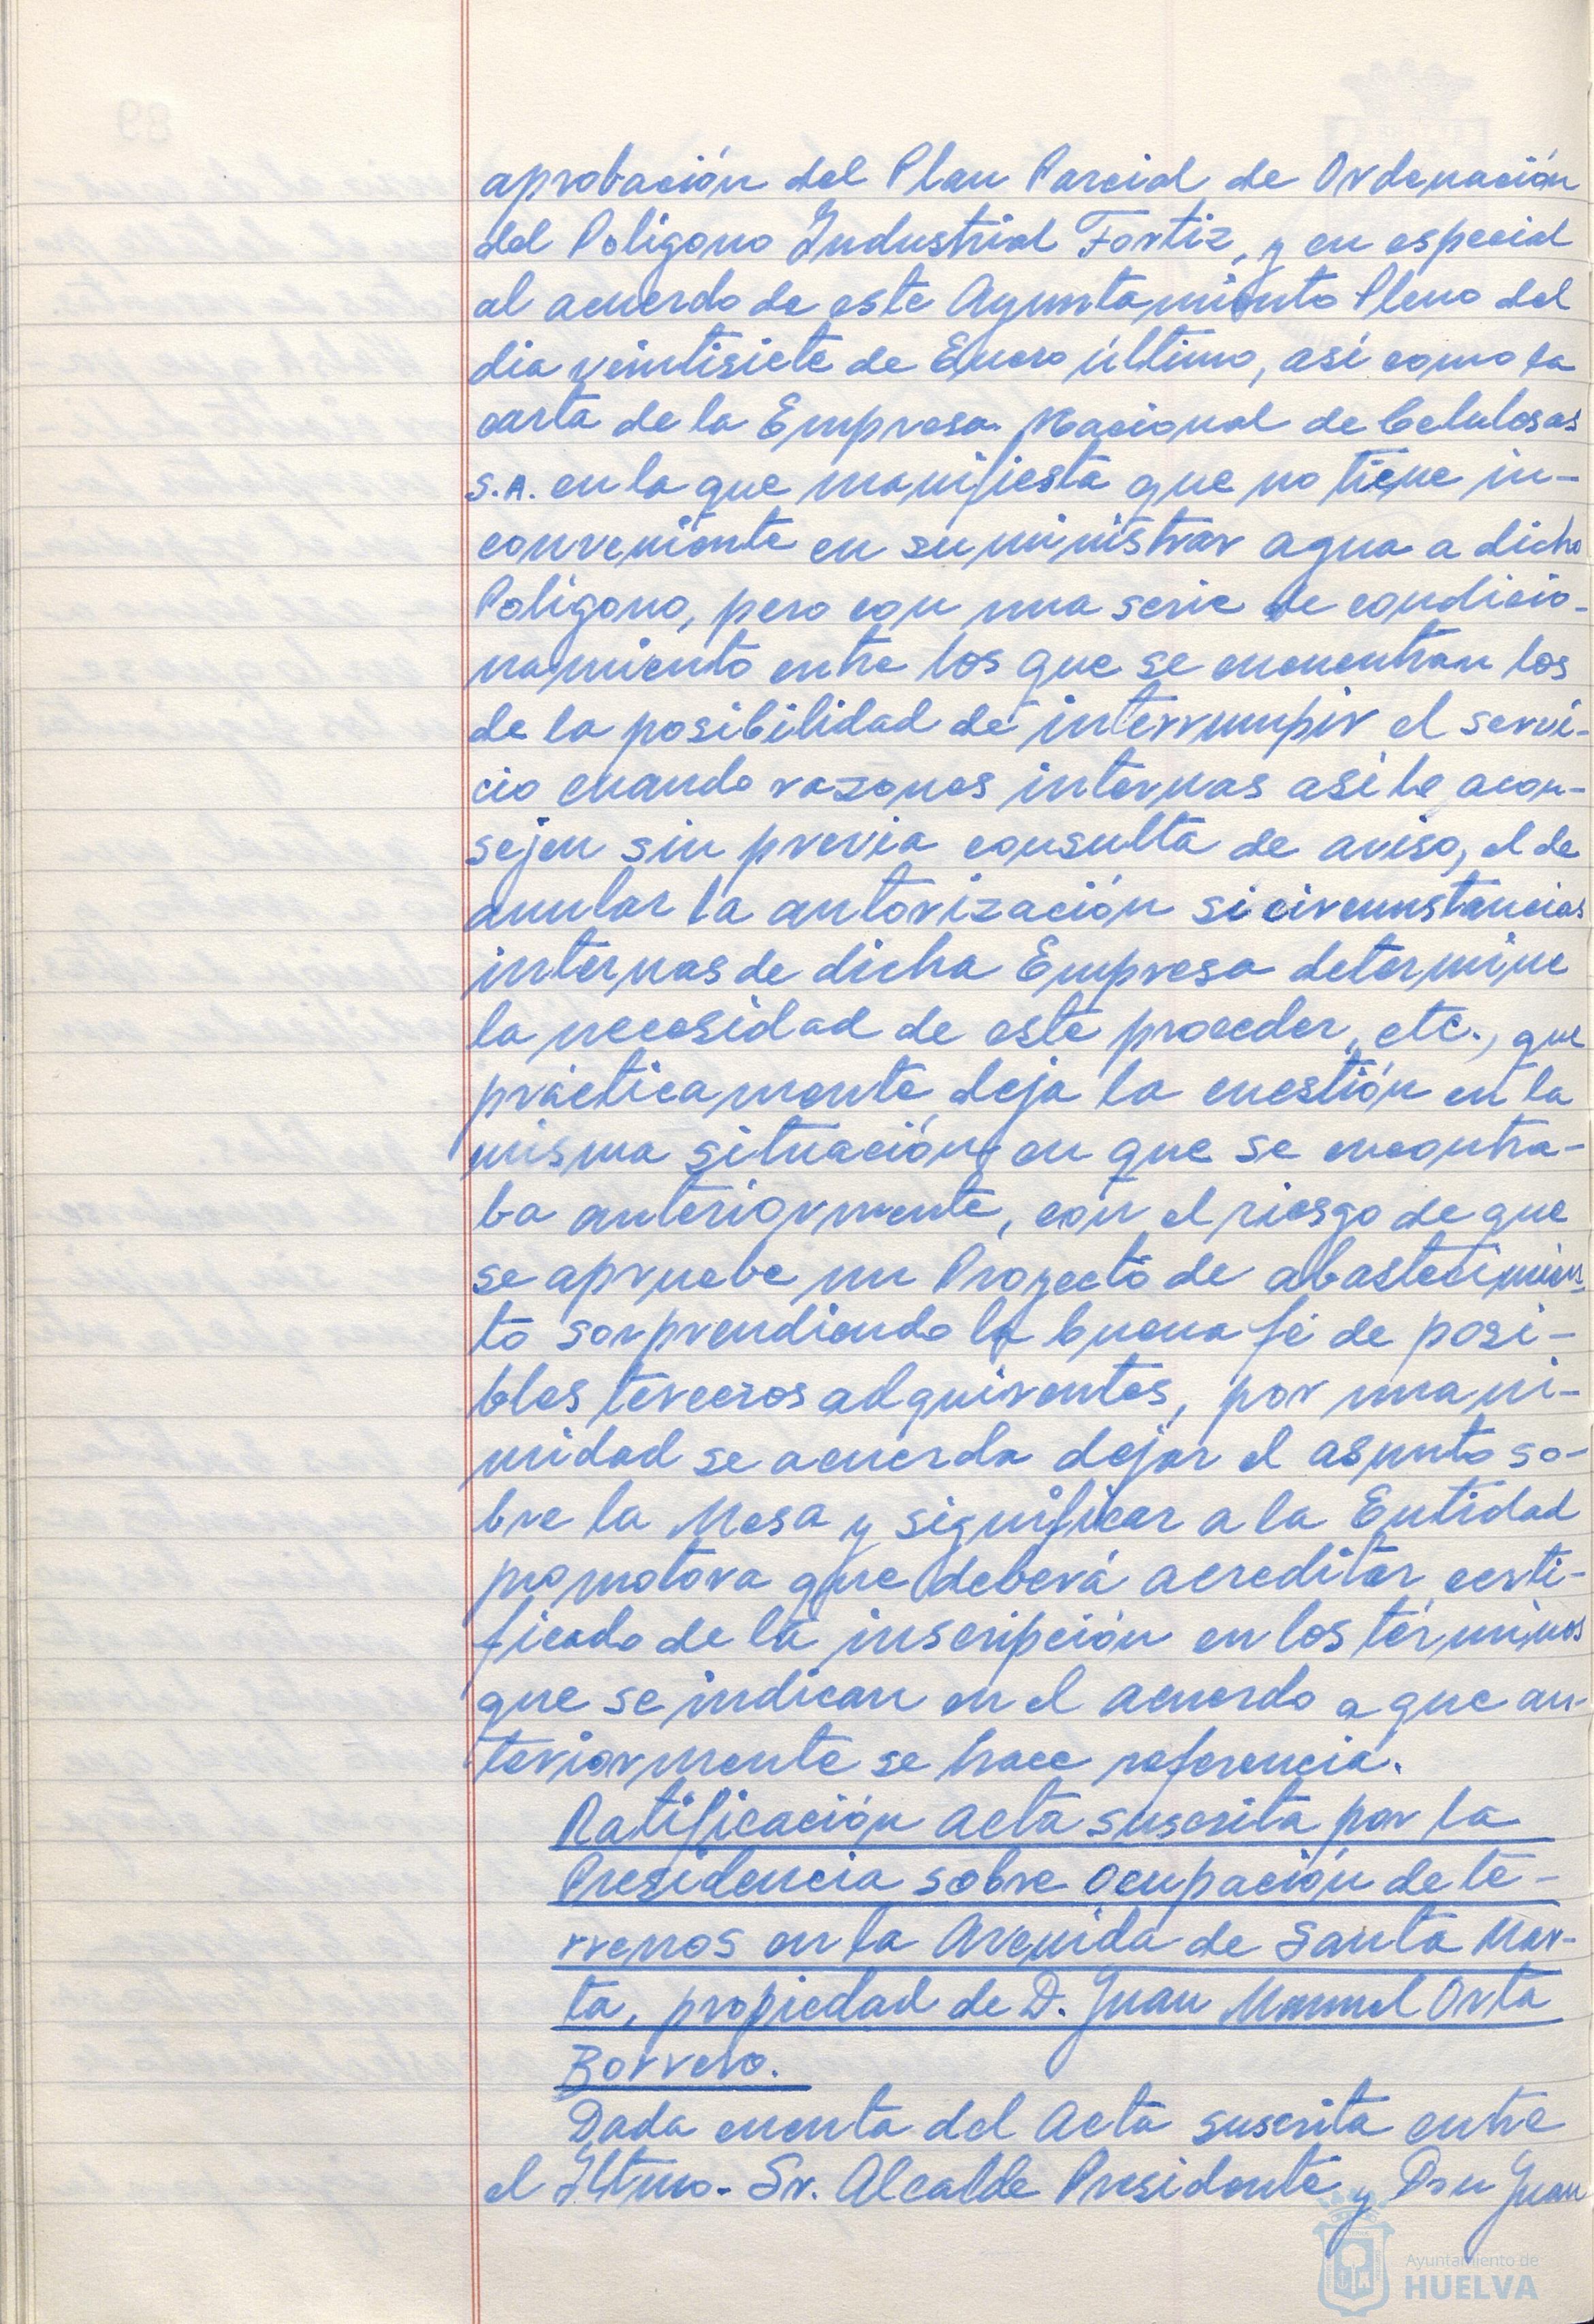 aprobación del Plan Parcial de Ordenación
del Poligono Industrial Fortiz, y en especial
al acuerdo de este Ayuntamiento Pleno del
dia veintisiete de Enero último, así como la
carta de la Empresa Nacional de Celulosas
S.A. en la que manifiesta que no tiene in-
conveniente en suministrar agua a dicho
Poligono, pero con una serie de condicio-
namiento entre los que se encuentran los
de la posibilidad de interrumpir el servi-
cio cuando razones internas así le acon-
sejen sin previa consulta de aviso, el de
anular la autorización si circunstancias
internas de dicha Empresa determine
la necesidad de este proceder, etc., que
prácticamente deja la cuestión en la
misma situación en que se encontra-
ba anteriormente, con el riesgo de que
se apruebe un Proyecto de abastecimien-
to sorprendiendo la buena fé de posi-
bles terceros adquirentes, por unani-
midad se acuerda dejar el asunto so-
bre la Mesa y significar a la Entidad
promotora que deberá acreditar certi-
ficado de la inscripción en los términos
que se indican en el acuerdo a que an-
teriormente se hace referencia.
Ratificación acta suscrita por la
Presidencia sobre ocupación de te-
rrenos en la Avenida de Santa Mar-
ta, propiedad de D. Juan Manuel Orta
Borrero.
Dada cuenta del Acta suscrita entre
el Iltmo. Sr. Alcalde Presidente y Don Juan
Ayuntamiento de
HUELVA